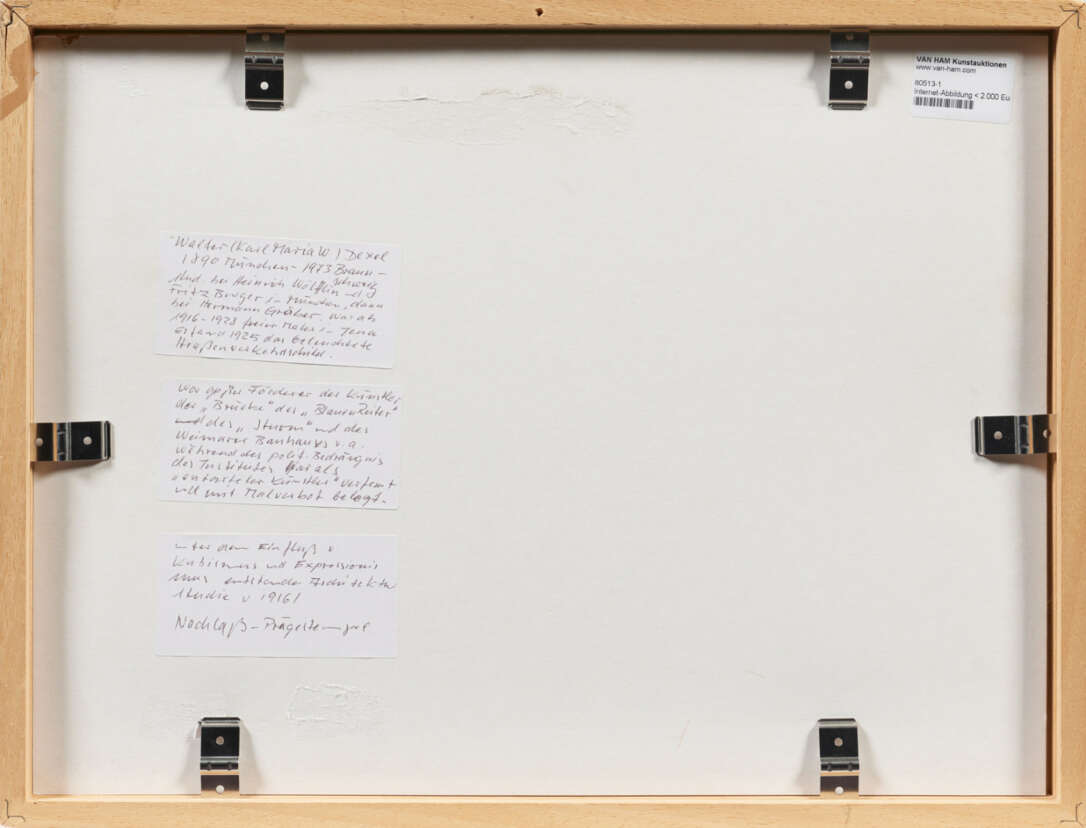 VAN HAM Kunstauktionen
www.van-ham.com
80513-1
Internet-Abbildung < 2.000 Eu
Walter (Karl Maria W) Dexel
1890 München - 1973 Braun-
schweig
Stud. bei Heinrich Wölfflin u
Fritz Burger in München, dann
bei Hermann Gräber. war ab
1916-1928 freier Maler in Jena
Erfand 1925 das beleuchtete
Straßenverkehrsschild.
war großer Förderer der Künstler
der „Brücke" des „Blauen Reiter"
und des „Sturm" und des
Weimarer Bauhauses u.a.
während der polit. Bedrängnis
des Institutes war als
entarteter Künstler" verfemt
und mit Malverbot belegt.
unter dem Einfluß v
Kubismus und Expressionis
mus entstandene Architektur
studie v 1916!
Nachlaß-Prägestempel